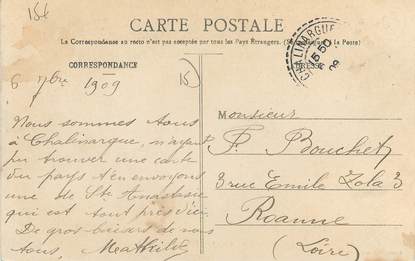 15f
CARTE POSTALE
La Correspondance au recto n'est pas acceptée par tous les Pays Étrangers. (Se à la Poste)
CORRESPONDANCE
ADRESSE
CHALINARGUES
15 50
09
6 7bre 1909
15
Nous sommes tous
à Chalinargue, n'ayant
pu trouver une carte
du pays t'en envoyons
une de Ste Anastasie
qui est tout près d'ici.
De gros baisers de nous
tous, Mathilde
Monsieur
F. Bouchet
3 rue Emile Zola 3
Roanne
(Loire)